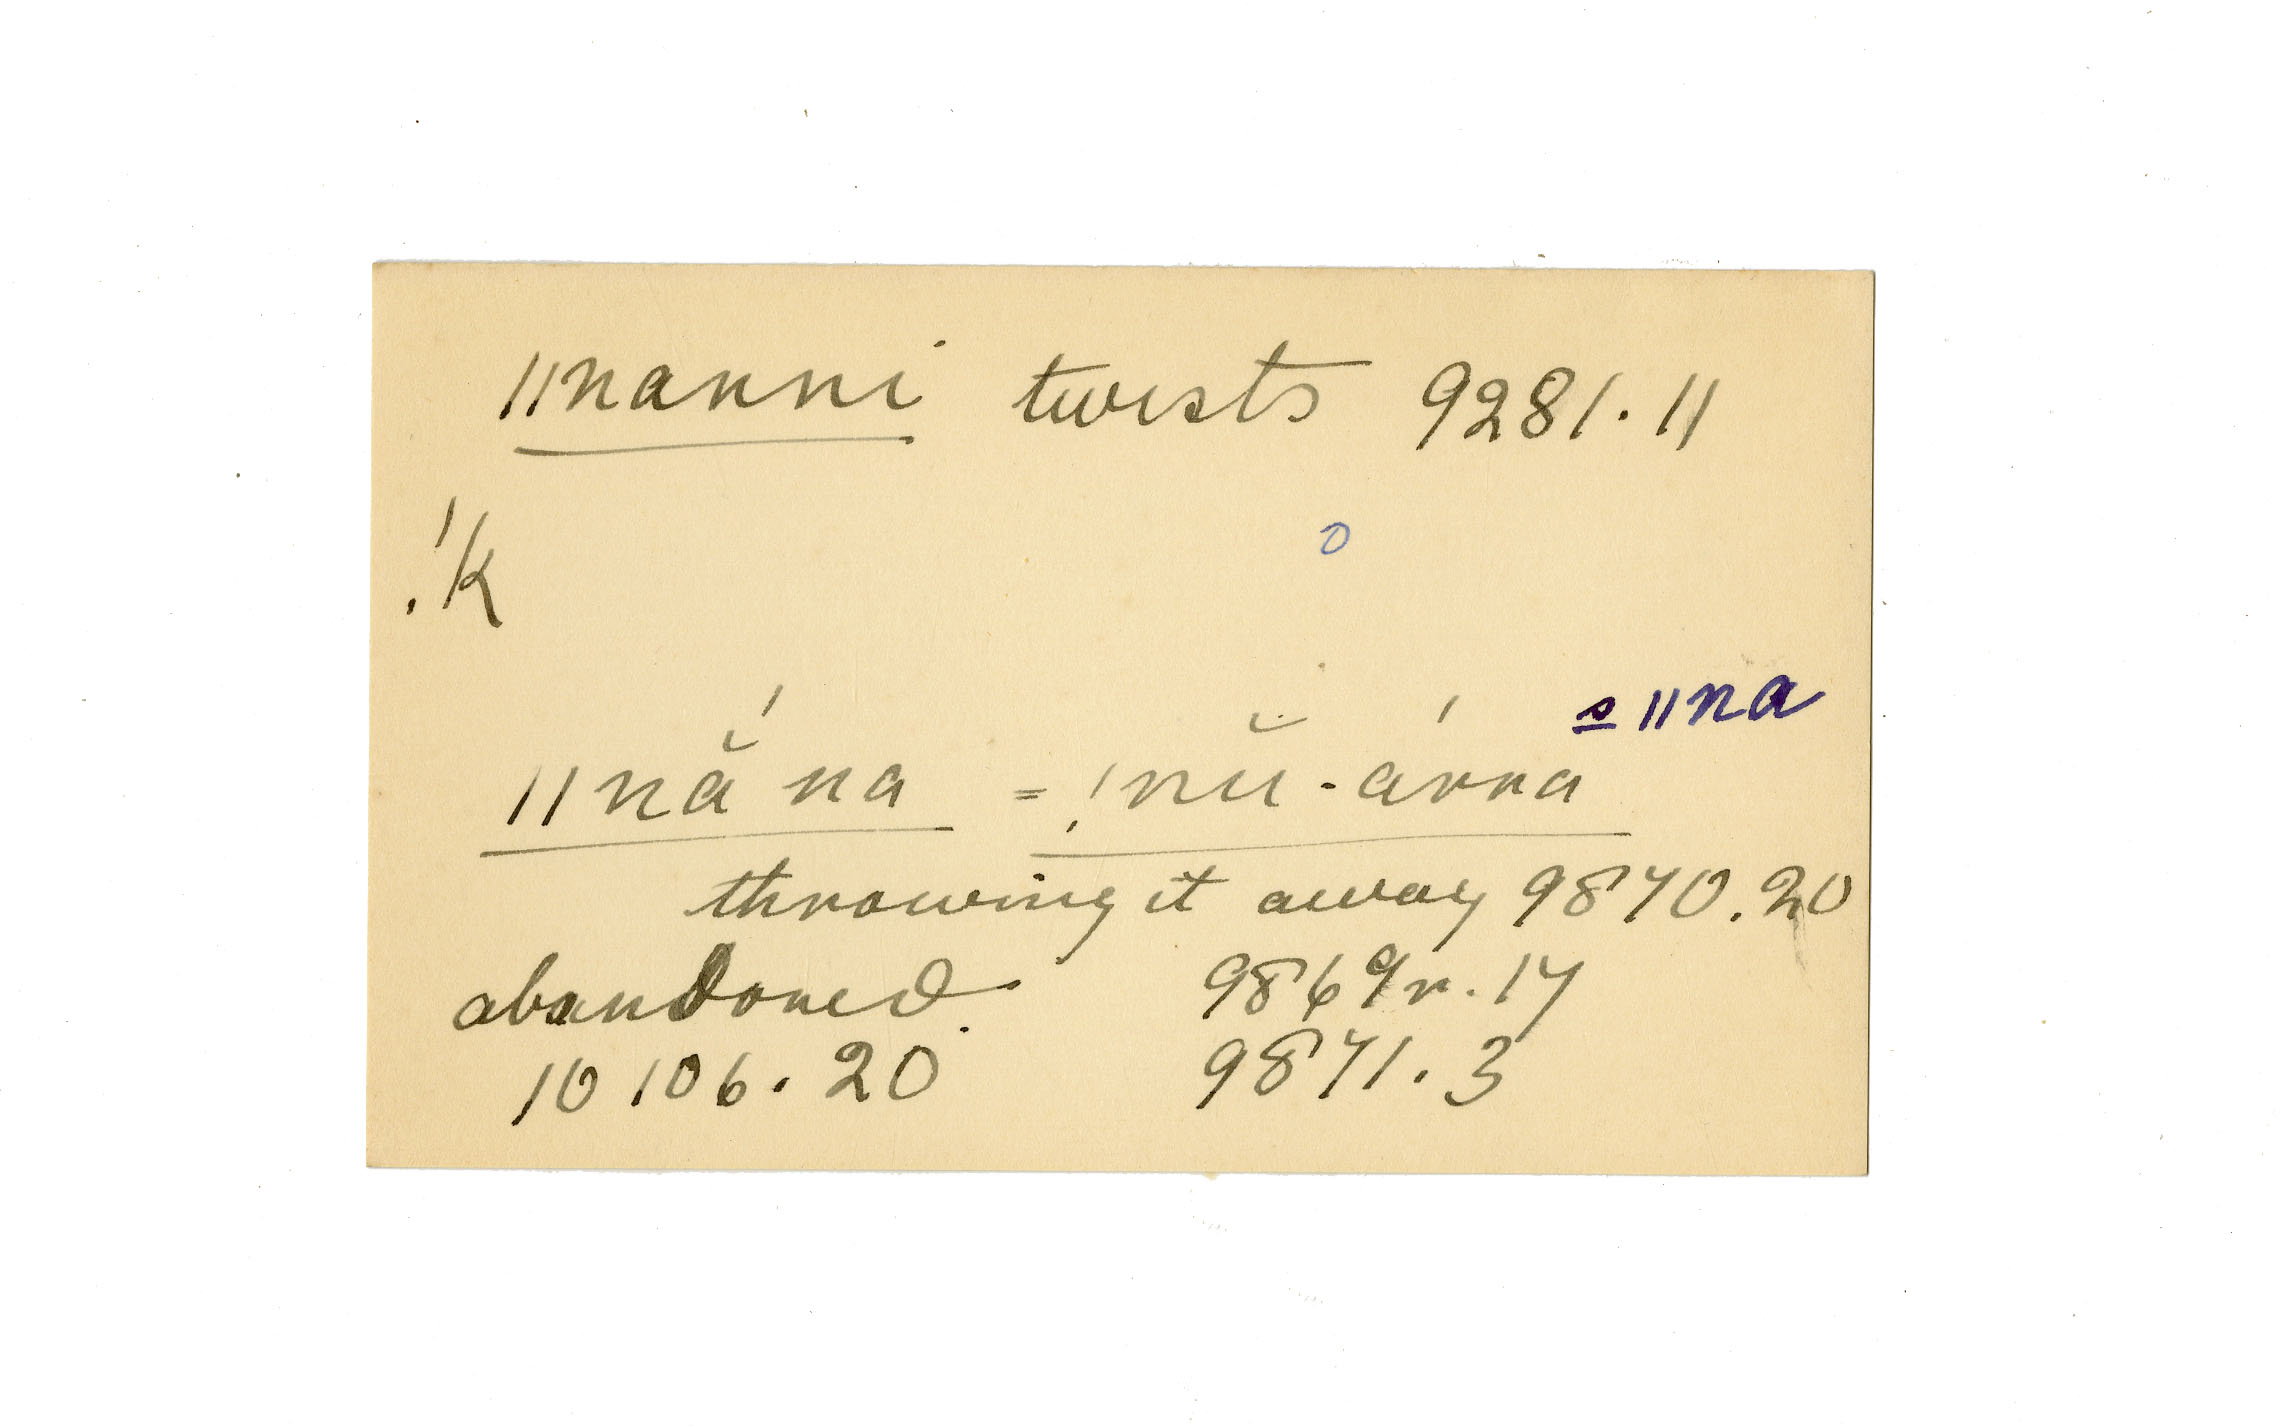 ǁnanni twists 9281.11
o
!k
s ǁna
ǁnắ na = !nŭ-árra
throwing it away 9870.20
abandoned 9869r.17
10106.20 9871.3